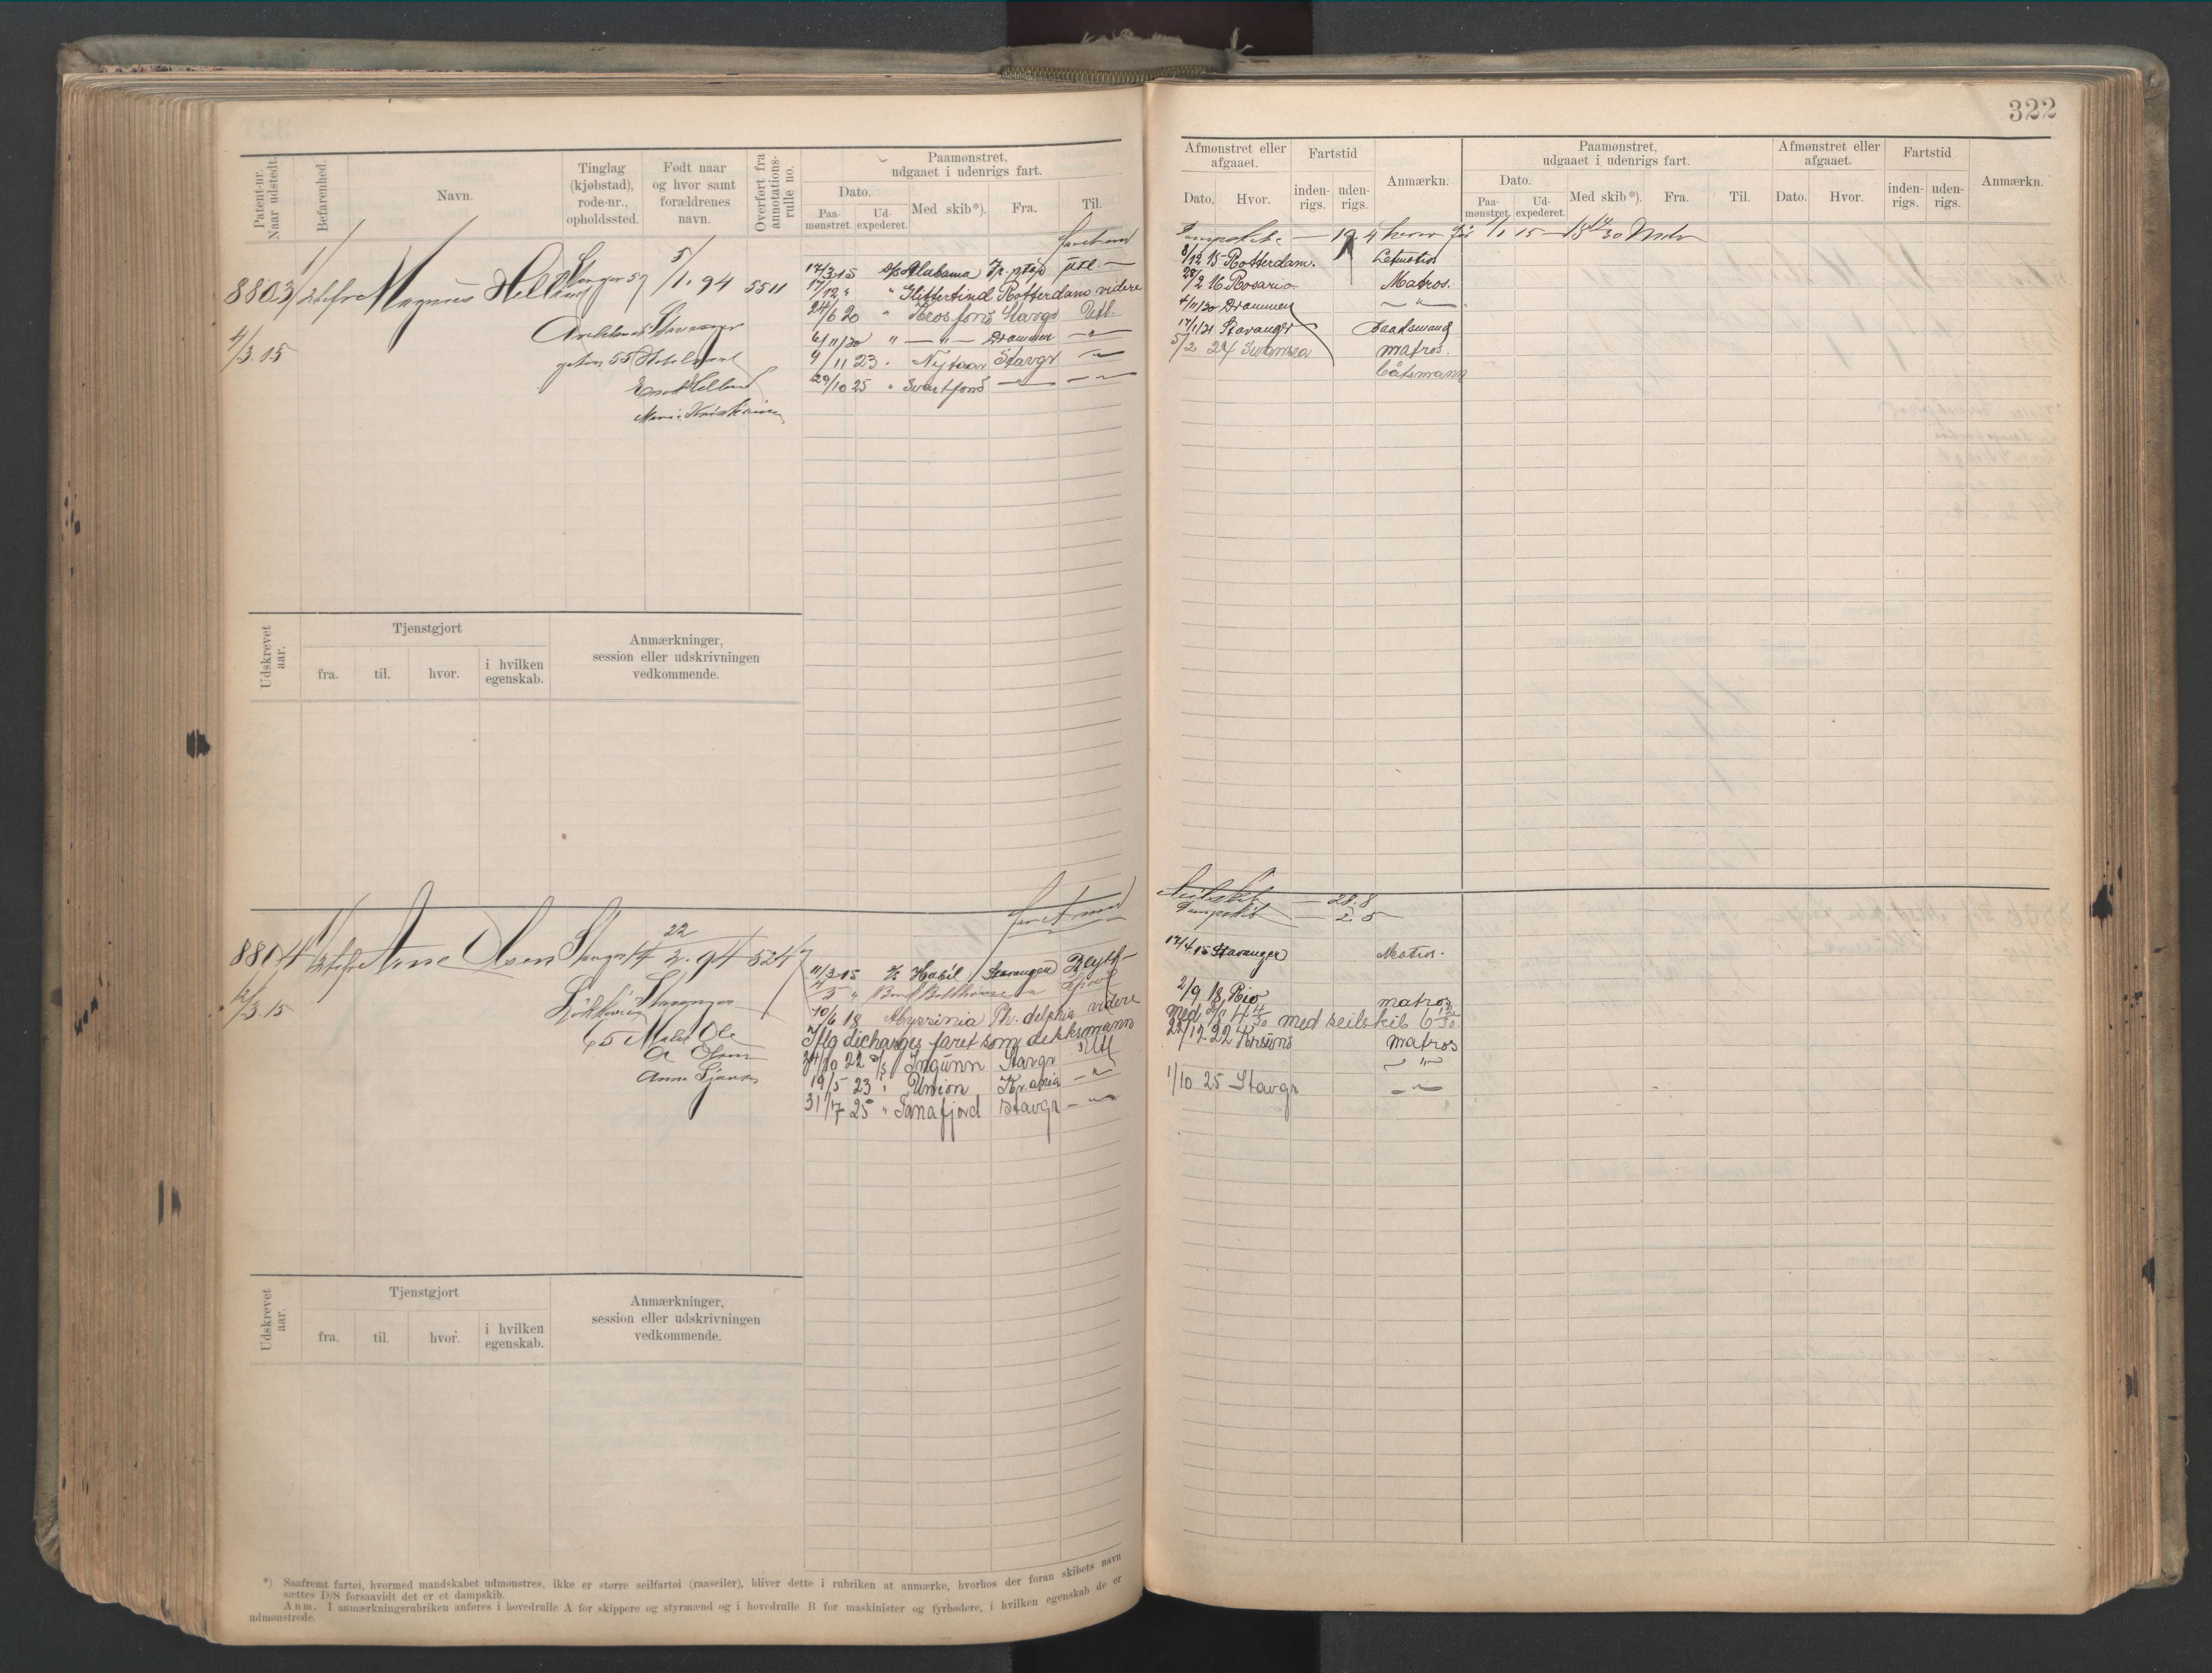 322
Patent-nr. Naar udstedt.
Befarenhed.
Navn.
Tinglag (kjøbstad), rode-nr., opholdssted.
Født naar og hvor samt forældrenes navn.
Overført fra annotations-rulle no.
Paamønstret, udgaaet i udenrigs fart.
Dato.
Paa-mønstret.
Ud-expederet.
Med skib*).
Fra.
Til.
Afmønstret eller afgaaet.
Dato.
Hvor.
Fartstid
inden-rigs.
uden-rigs.
Anmærkn.
Paamønstret, udgaaet i udenrigs fart.
Dato.
Paa-mønstret.
Ud-expederet.
Med skib*).
Fra.
Til.
Afmønstret eller afgaaet.
Dato.
Hvor.
Fartstid
inden-rigs.
uden-rigs.
Anmærkn.
8803
Magnus Helland
5/1. 94
5511
4/3.15
Stavanger
Enok Helland
17/3 15 D/S Alabama
17/12 " " Glittertind Rotterdam videre
24/6 20 " Krosfond Stavgr Utl.
6/11/20 " — " — Drammen — " —
9/11 23 " Nyttaar Stavgr
29/10 25 " Svartfond
faret med
Dampskib — 19. 4
1/1 15
8/12 15 Rotterdam.
28/2 16 Rosario. Matros.
4/11/20 Drammen — " —
17/1/21 Stavanger Baadsmand
5/2 24 Swansea matros.
båtsmann
Udskrevet aar.
Tjenstgjort
fra.
til.
hvor.
i hvilken egenskab.
Anmærkninger, session eller udskrivningen vedkommende.
8804
Arne Olsen
22/2. 94
5247
12/3.15
Stavanger
65 Maler Ole
Olsen
Anna
11/3 15 D/S Habil Stavanger Blyth
10/6 18 Abyssinia Ph. delphia videre
Iflg dicharges faret som dekksmann
24/10 22 D/S Ingunn Stavgr Utl
19/5 23 " Union Kr.ania — " —
31/7 25 " Tanafjord Stavgr — " —
faret med
Seilskib — 28.8
Dampskib — 2.5
17/4 15 Stavanger Matros.
2/9 18, Rio matros
med D/S 4 4/30 med seilskib 6 12/30
22/12 22 Krsund matros
— " —
1/10 25 Stavgr — " —
Udskrevet aar.
Tjenstgjort
fra.
til.
hvor.
i hvilken egenskab.
Anmærkninger, session eller udskrivningen vedkommende.
*) Saafremt fartøi, hvormed mandskabet udmønstres, ikke er større seilfartøi (raaseiler), bliver dette i rubriken at anmærke, hvorhos der foran skibets navn
sættes D/S forsaavidt det er et dampskib.
Anm. I anmærkningsrubriken anføres i hovedrulle A for skippere og styrmænd og i hovedrulle B for maskinister og fyrbødere, i hvilken egenskab de er
udmønstrede.